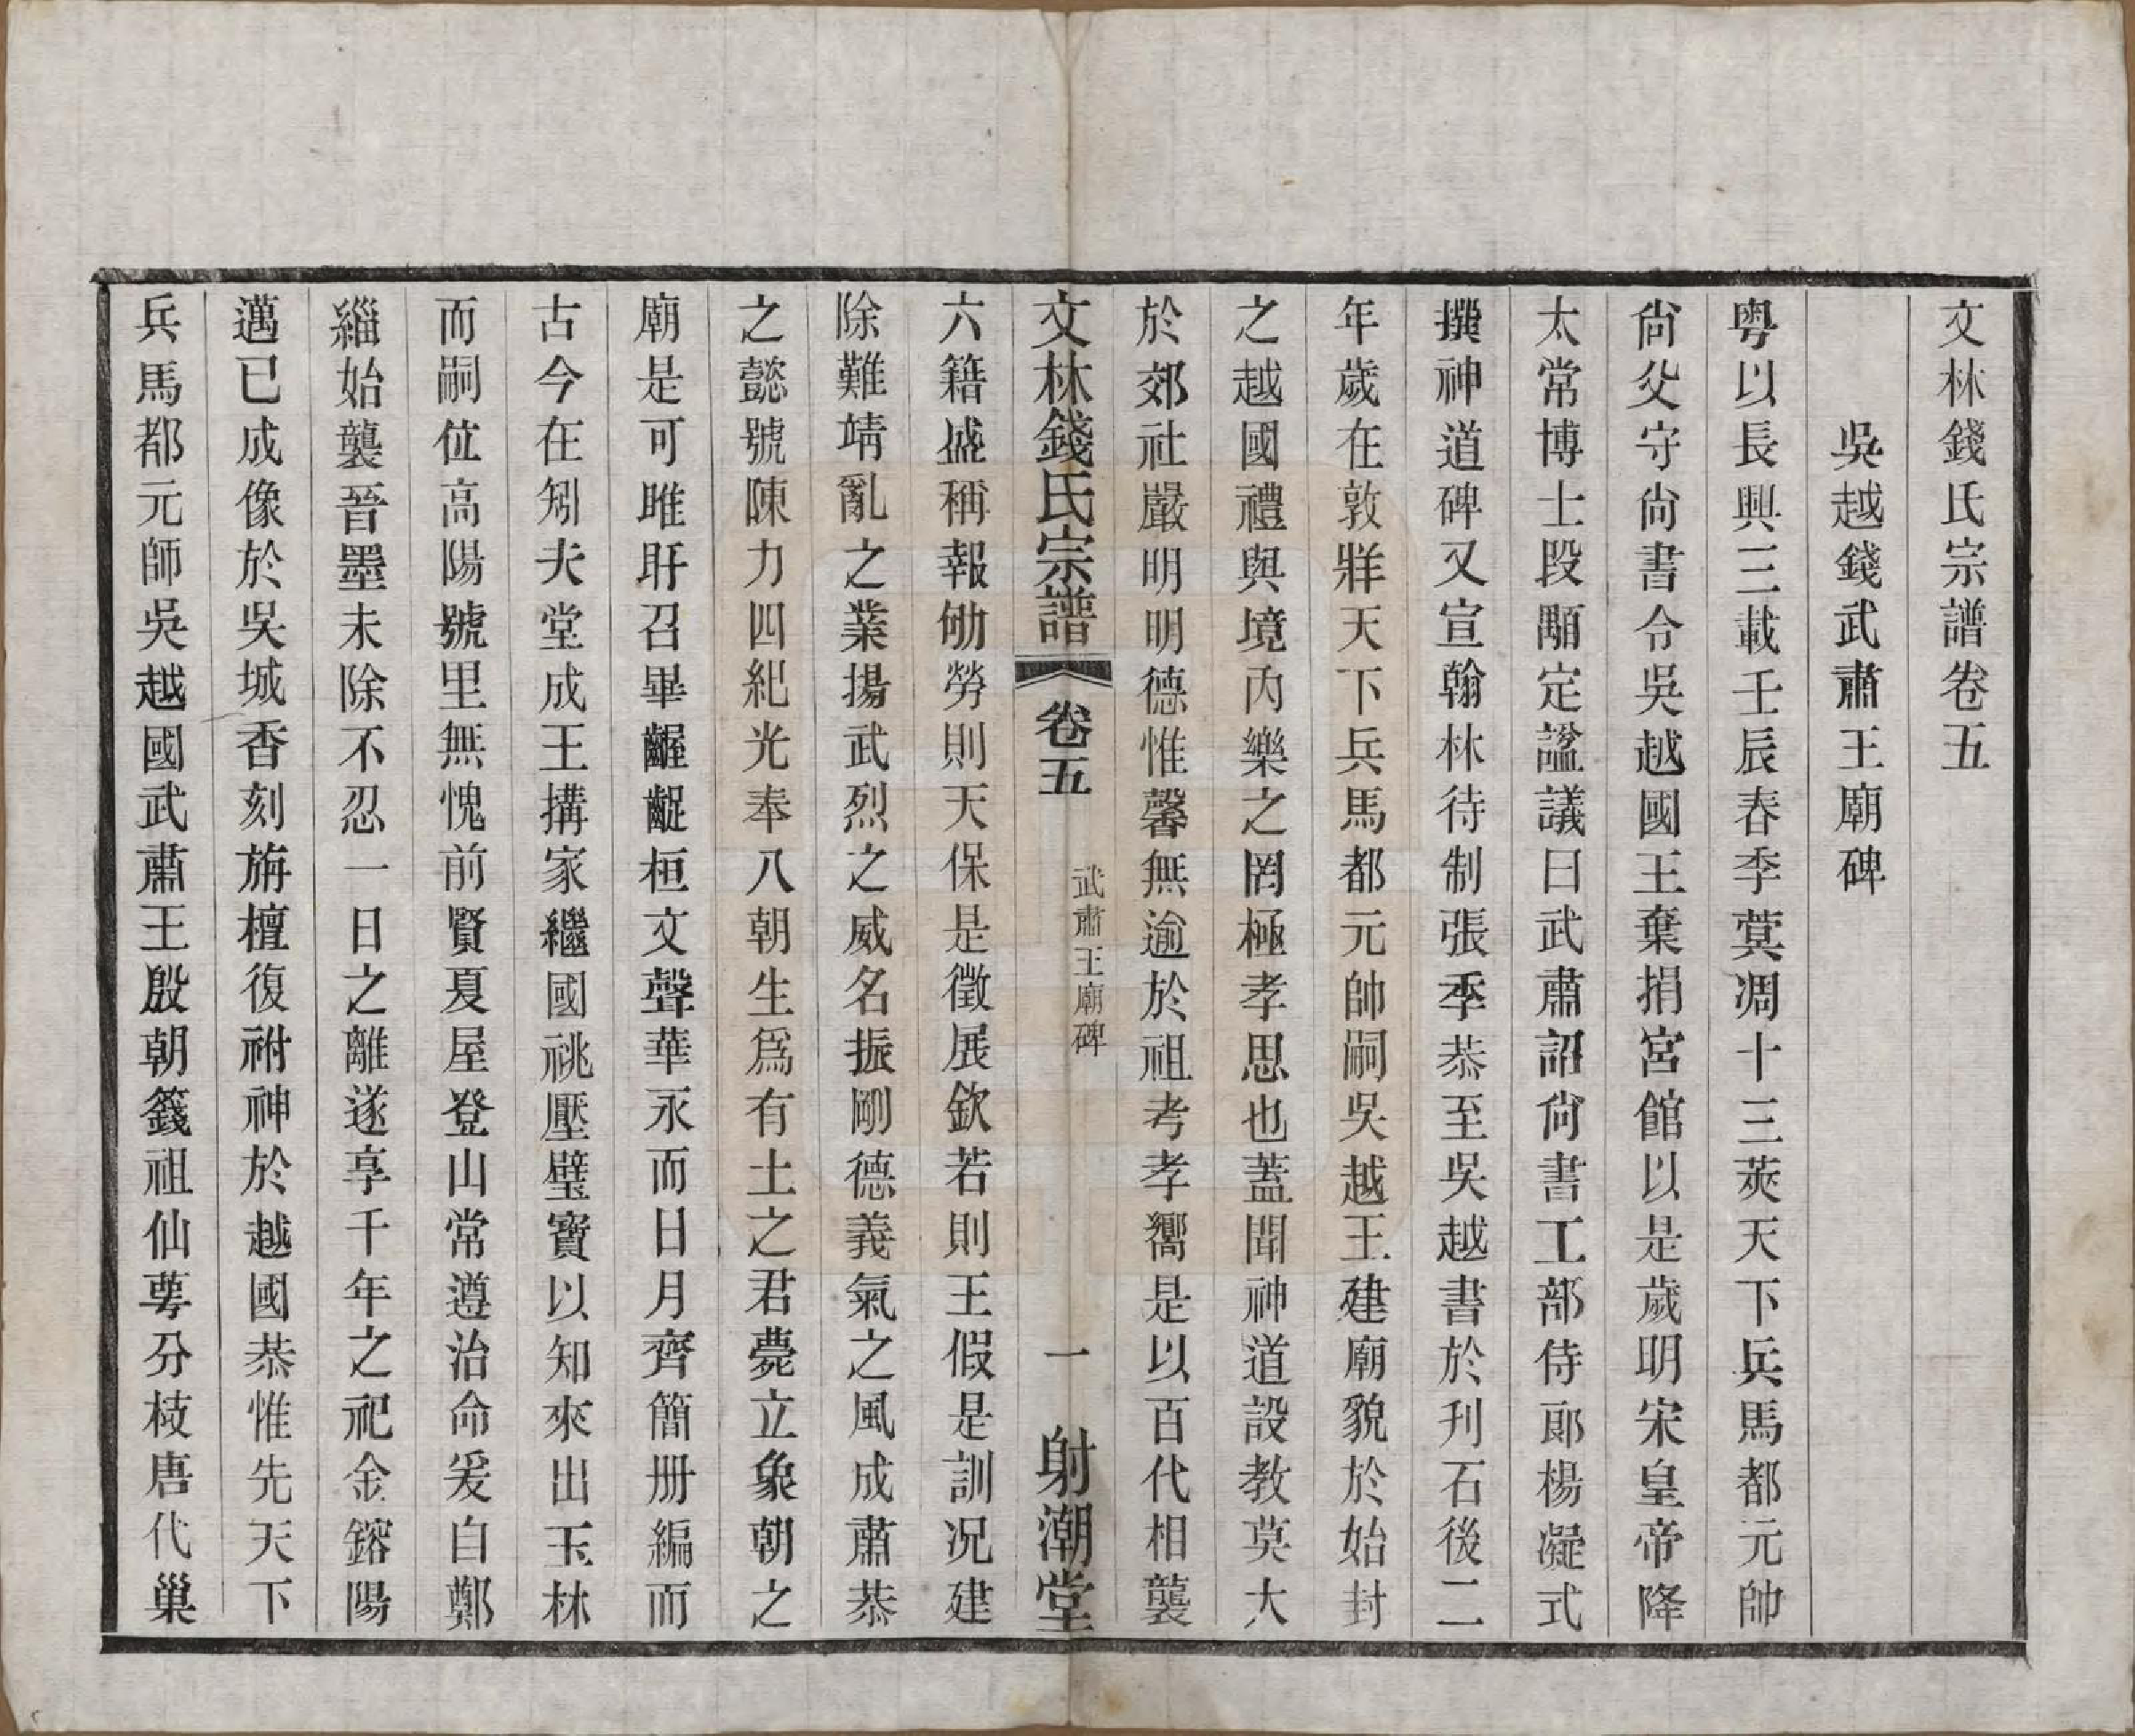 文林錢氏宗譜卷五
吳越錢武肅王廟碑
粵以長興三載壬辰春季蓂凋十三莢天下兵馬都元帥
尙父守尙書令吳越國王棄捐宮館以是歲明宋皇帝降
太常博士段顒定諡議曰武肅詔尙書工部侍郎楊凝式
撰神道碑又宣翰林待制張季恭至吳越書於刋石後二
年歲在敦牂天下兵馬都元帥嗣吳越王建廟貌於始封
之越國禮與境內樂之罔極孝思也蓋聞神道設教莫大
於郊社嚴明明德惟馨無逾於祖考孝嚮是以百代相襲
文林錢氏宗譜 卷五 武肅王廟碑 一 射潮堂
六籍盛稱報劬勞則天保是徵展欽若則王假是訓况建
除難靖亂之業揚武烈之威名振剛德義氣之風成肅恭
之懿號陳力四紀光奉八朝生爲有土之君薨立象朝之
廟是可睢盱召畢齷齪桓文聲華永而日月齊簡册編而
古今在矧夫堂成王搆家繼國祧壓璧寶以知來出玉林
而嗣位高陽號里無愧前賢夏屋登山常遵治命爰自鄭
緇始襲晉墨未除不忍一日之離遂享千年之祀金鎔陽
邁已成像於吳城香刻旃檀復祔神於越國恭惟先天下
兵馬都元師吳越國武肅王殷朝籛祖仙萼分枝唐代巢